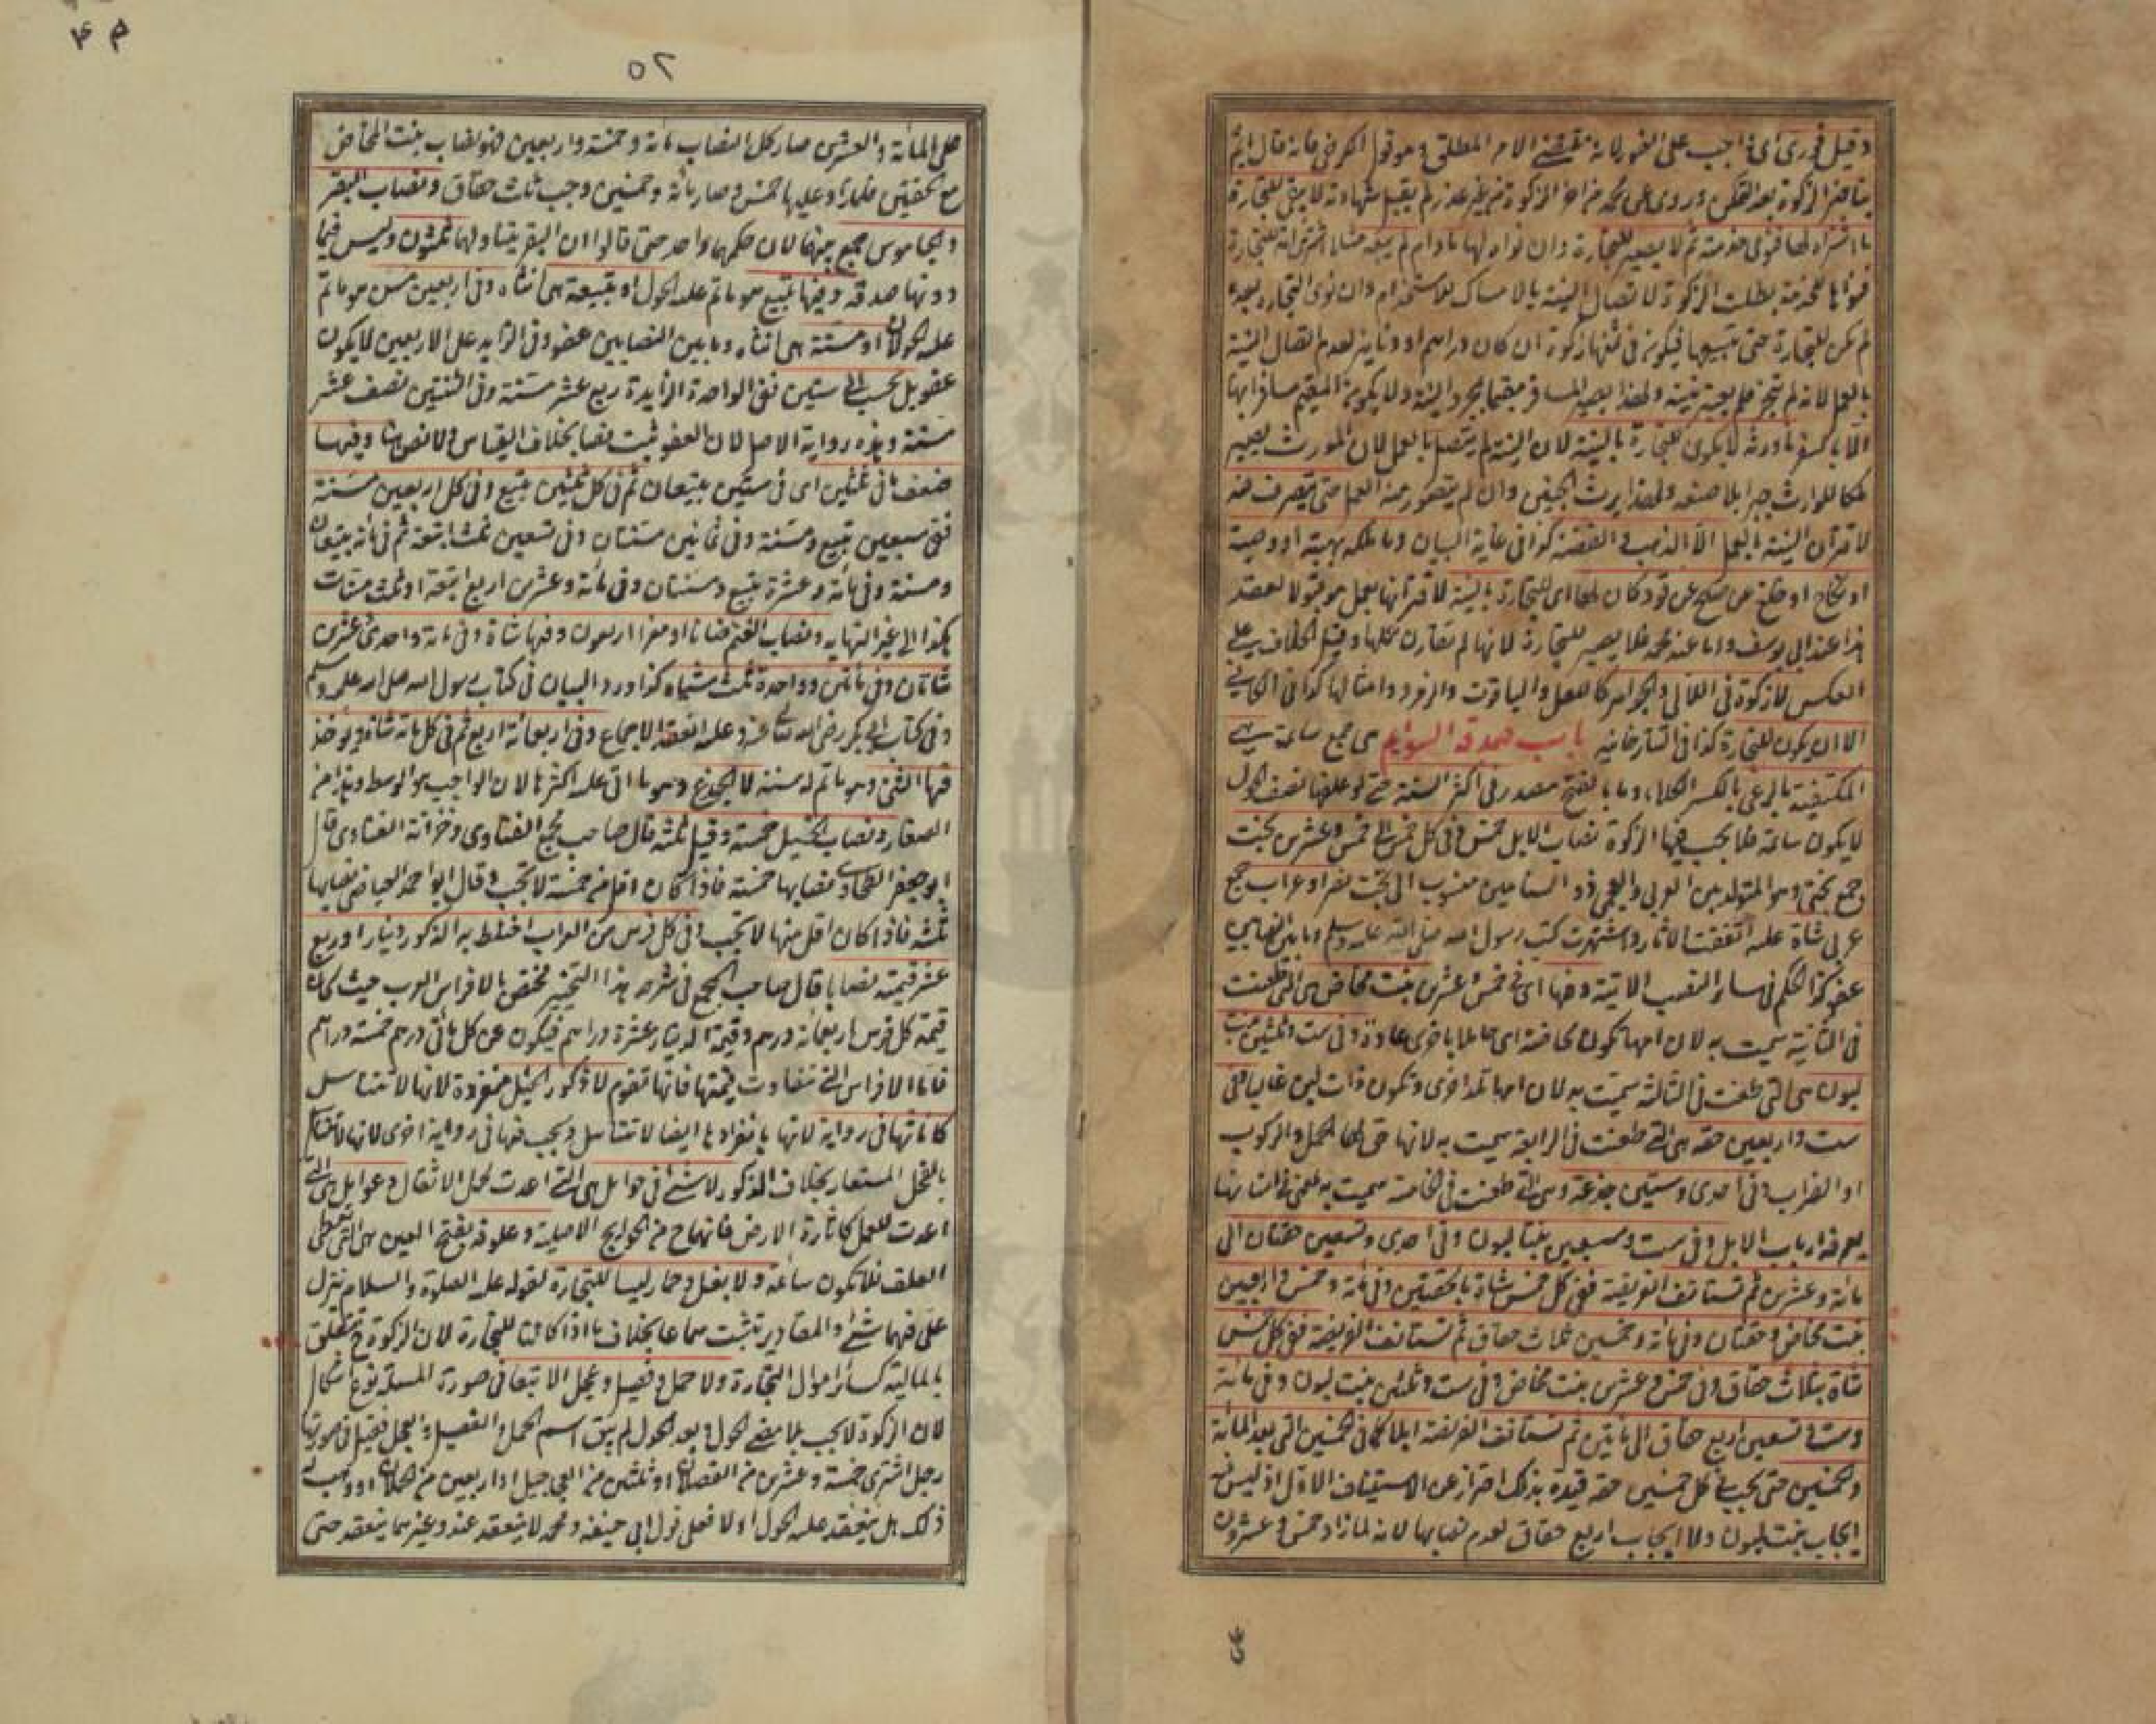 وقيل فوري اى واجب على الفور لانه مقتضى الامر المطلق وهو قول الكرخي فانه قال يأثم
بتأخير الزكوة بعد التمكن وروى عن محمد من اخر الزكوة من غير عذر لم يقبل شهادته لا يبقى للتجارة
ما اشتراه لها فنوى خدمته ثم لا يصير للتجارة وان نواه لها ما دام لم يبعه مثلا اشترى امة للتجارة
فنواها للخدمة بطلت الزكوة لاتصال النية بالامساك للاستخدام وان نوى التجارة بعده
لم يكن للتجارة حتى يبيعها فيكون في ثمنها زكوة ان كان دراهم او دنانير لعدم اتصال النية
بالعمل لانه لم يتجر فلم يعتبر نيته ولهذا يصير المسافر مقيما بمجرد النية ولا يكون المقيم مسافرا بها
الا بالسفر ما ورثه لا يكون للتجارة بالنية لان النية لم يتصل بالعمل لان الموروث يصير
ملكا للوارث جبرا بلا صنعه ولهذا يرث الجنين وان لم يتصور منه العمل حتى يتصرف فيه
لاقتران النية بالعمل الا الذهب والفضة كذا في غاية البيان وما ملكه بهبة او وصية
او نكاح او خلع او صلح عن قود كان لها اى للتجارة بالنية لاقترانها بعمل هو قبول العقد
هذا عند ابي يوسف واما عند محمد فلا يصير للتجارة لانها لم تقارن عملها وقيل الخلاف على
العكس لا زكوة في اللآلي والجواهر كاللعل والياقوت والزمرد وامثالها كذا في الكافي
الا ان يكون للتجارة كذا في التتارخانية باب صدقة السوايم هى جمع سائمة هي
المكتفية بالرعي بالكسر الكلاء وما بالفتح مصدر في اكثر السنة حتى لو علفها نصف الحول
لا يكون سائمة فلا يجب فيها الزكوة نصاب الابل خمس ففي كل خمس الى خمس وعشرين بخت
جمع بختي وهو المتولد بين العربي والعجمي ذو السنامين منسوب الى بخت نصر او عراب جمع
عربي شاة عليه اتفقت الآثار واشتهرت كتب رسول الله صلى الله عليه وسلم وما بين النصابين
عفو كذا الحكم في سائر النصب الآتية وفيها اى في خمس وعشرين بنت مخاض هى التي طعنت
في الثانية سميت به لان امها تكون مخاضا اى حاملا باخرى عادة وفي ست وثلثين بنت
لبون هى التي طعنت في الثالثة سميت به لان امها تلد اخرى وتكون ذات لبن غالبا وفي
ست واربعين حقة هى التي طعنت في الرابعة سميت به لانها حق لها الحمل والركوب
او الضراب وفي احدى وستين جذعة وهى التي طعنت في الخامسة سميت به لمعنى في اسنانها
يعرفه ارباب الابل وفي ست وسبعين بنتا لبون وفي احدى وتسعين حقتان الى
مائة وعشرين ثم تستأنف الفريضة ففي كل خمس شاة بالحقتين وفي مائة وخمس واربعين
بنت مخاض وحقتان وفي مائة وخمسين ثلاث حقاق ثم تستأنف الفريضة ففي كل خمس
شاة بثلاث حقاق وفي خمس وعشرين بنت مخاض وفي ست وثلثين بنت لبون وفي مائة
وست وتسعين اربع حقاق الى مائتين ثم تستأنف الفريضة ابدا كما في الخمسين التي بعد المائة
والخمسين حتى يجب في كل خمسين حقة قيده بذلك احتراز عن الاستيناف الاول اذ ليس فيه
ايجاب بنت لبون ولا ايجاب اربع حقاق لعدم نصابها لانه لما زاد خمس وعشرون
٥٢
على المائة والعشرين صار كل النصاب مائة وخمسة واربعين فهو نصاب بنت المخاض
مع الحقتين فلما زاد عليها خمس وصار مائة وخمسين وجب ثلث حقاق ونصاب البقر
والجاموس جمع بينهما لان حكمهما واحد حتى قالوا ان البقر يتناولهما ثلثون وليس فيما
دونها صدقة وفيها تبيع هو ما تم عليه الحول او تبيعة هى انثاه وفي اربعين مسن هو ما تم
عليه الحولان او مسنة هى انثاه وما بين النصابين عفو وفي الزايد على الاربعين لا يكون
عفو بل يحسب الى ستين ففي الواحدة الزايدة ربع عشر مسنة وفي الثنتين نصف عشر
مسنة وهذه رواية الاصل لان العفو ثبت نصا بخلاف القياس ولا نص هنا وفيها
ضعف ما في ثلثين اى في ستين تبيعان ثم في كل ثلثين تبيع وفي كل اربعين مسنة
ففي سبعين تبيع ومسنة وفي ثمانين مسنتان وفي تسعين ثلث اتبعة ثم في مائة تبيعان
ومسنة وفي مائة وعشرة تبيع ومسنتان وفي مائة وعشرين اربع اتبعة او ثلث مسنات
هكذا الى غير النهاية ونصاب الغنم ضأنا او معزا اربعون وفيها شاة وفي مائة واحدى وعشرين
شاتان وفي مائتين وواحدة ثلث شياه كذا ورد البيان في كتاب رسول الله صلى الله عليه وسلم
وفي كتاب ابي بكر رضي الله تعالى عنه وعليه انعقد الاجماع وفي اربعمائة اربع ثم في كل مائة شاة ويؤخذ
فيها الثني وهو ما تم له سنة لا الجذع وهو ما اتى عليه اكثرها لان الواجب هو الوسط وهذا من
الصغار ونصاب الخيل خمسة وقيل ثلثة قال صاحب مجمع الفتاوى وخزانة الفتاوى قال
ابو جعفر الطحاوي نصابها خمسة فاذا كان اقل من خمسة لا تجب وقال ابو احمد العياضي نصابها
ثلثة فاذا كان اقل منها لا تجب وفي كل فرس من العراب اختلط به الذكور دينار او ربع
عشر قيمته نصابا قال صاحب المجمع في شرحه هذا التخيير مختص بالافراس العرب حيث كان
قيمة كل فرس اربعمائة درهم وقيمة الدينار عشرة دراهم فيكون عن كل مائتي درهم خمسة دراهم
فاما الافراس التي تتفاوت قيمتها فانها تقوم لا ذكور الخيل منفردة لانها لا تتناسل
كاناثها في رواية لانها بانفرادها ايضا لا تتناسل ويجب فيها في رواية اخرى لانها تتناسل
بالفحل المستعار بخلاف الذكور لا شئ في حوامل هى التي اعدت لحمل الاثقال وعوامل هى التي
اعدت للعمل كاثارة الارض فانهما ح من الحوايج الاصلية وعلوفة بفتح العين هى التي تعطى
العلف فلا تكون سائمة ولا بغل وحمار ليسا للتجارة لقوله عليه الصلوة والسلام لم ينزل
علي فيهما شئ والمقادير تثبت سماعا بخلاف ما اذا كانا للتجارة لان الزكوة ح تتعلق
بالمالية كسائر اموال التجارة ولا حمل وفصيل وعجل الا تبعا في صورة المسئلة نوع اشكال
لان الزكوة لا تجب بلا مضي الحول وبعد الحول لم يبق اسم الحمل والفصيل والعجل فقيل في صورتها
رجل اشترى خمسة وعشرين من الفصلان او ثلثين من العجاجيل او اربعين من الحملان او وهب له
ذلك هل ينعقد عليه الحول او لا فعلى قول ابي حنيفة ومحمد لا ينعقد وعند غيرهما ينعقد حتى